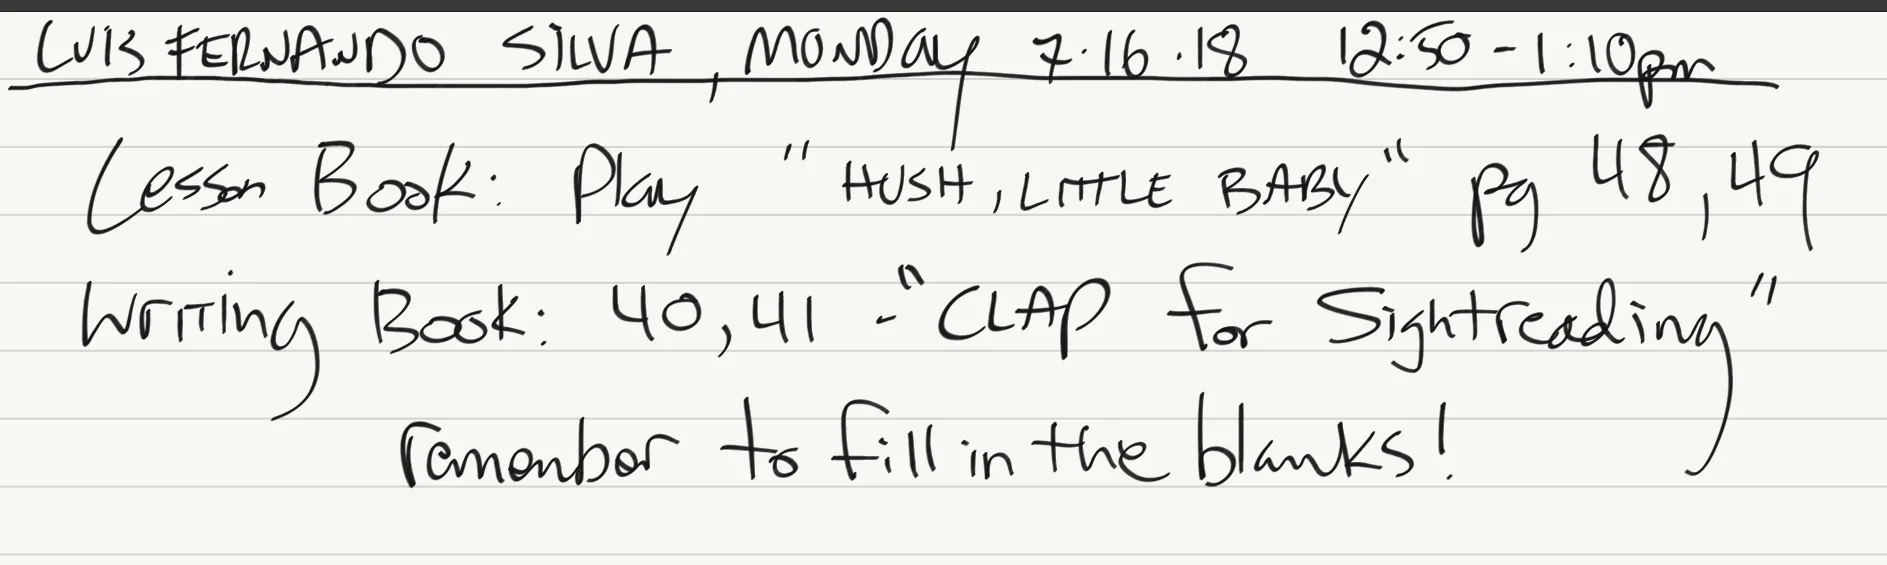 LUIS FERNANDO SILVA, MONDAY 7.16.18 12:50 - 1:10pm
Lesson Book: Play "HUSH, LITTLE BABY" pg 48, 49
Writing Book: 40, 41 - "CLAP for Sightreading"
remember to fill in the blanks!